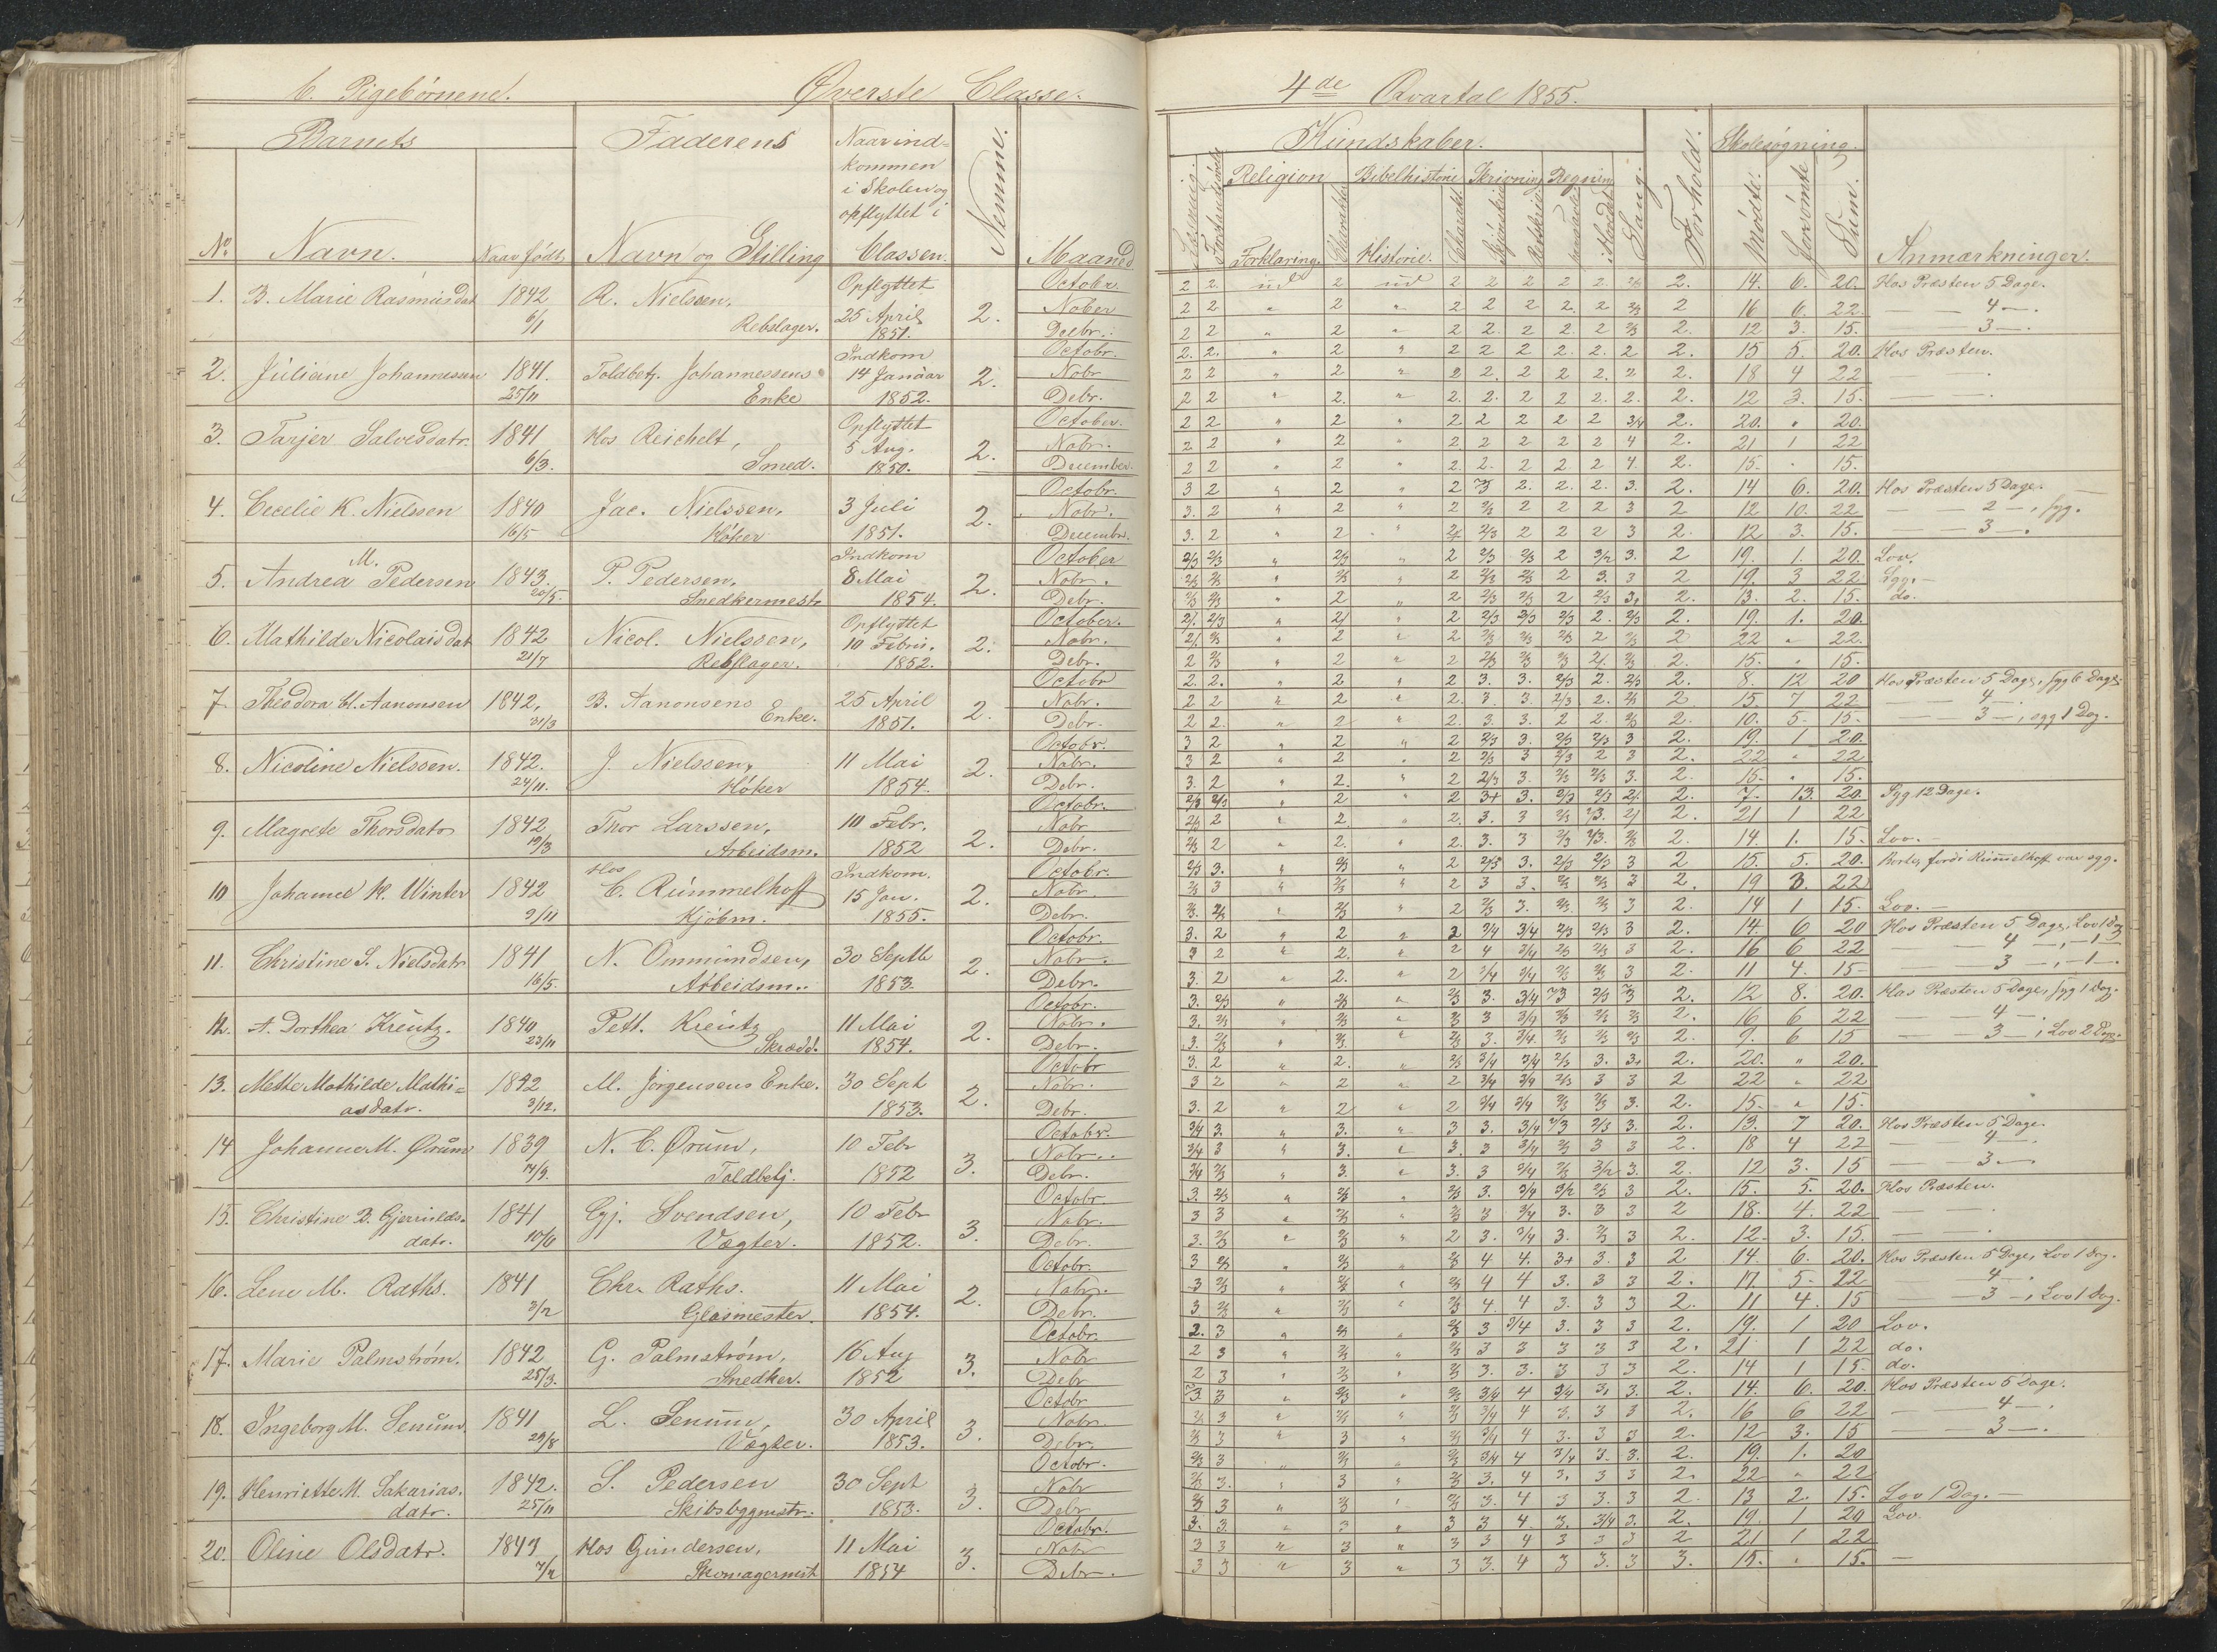 b. Pigebørnene. Øverste Classe.
4de Qvartal 1855.
Barnets Faderens Naar ind-
kommen
i Skolen og
opflyttet i
Classen.
Nemme.
No Navn. Naar født Navn og Stilling Maaned
Kundskaber. Forhold. Skolesøgning.
Religion Bibelhistorie Skrivning Regning Sang.
Forklaring. Charakter Historie. Charakt. Mødte. Forsømte Sum. Anmærkninger.
1. B. Marie Rasmusdat 1842 R. Nielssen, Opflyttet Octobr. 2 2. ud 2 ud 2 2 2 2 2. 2/3 2. 14. 6. 20. Hos Præsten 5 Dage.
6/1 Rebslager. 25 April 2. Nober 2 2 " 2 " 2 2 2 2. 2 2/3 2 16 6. 22. — — 4 —.
1851. Decbr. 2 2 " 2 " 2 2. 2 2. 2 2/3 2. 12 3. 15. — 3 —.
2. Juliane Johannessen 1841. Toldbetj. Johannessens Indkom Octobr. 2. 2. " 2 " 2 2 2 2. 2. 2 2. 15 5. 20. Hos Præsten.
25/11 Enke 14 Januar 2. Nobr 2 2 " 2 " 2 2. 2 2 2. 2 2. 18 4 22 — —.
1852. Debr. 2 2 " 2. " 2. 2. 2 2 2. 2. 2. 12 3. 15. — —.
3. Tarjer Salvesdatr. 1841 Hos Reichelt, Opflyttet October. 2 2 " 2 " 2 2 2 2 2 3/4 2. 20. " 20.
6/3. Smed. 5 Aug. 2. Nobr. 2 2 " 2 " 2 2 2 2 2 4 2. 21 1 22
1850. December. 2 2 " 2 " 2. 2. 2 2. 2. 4. 2. 15. . 15.
4. Cecelie K. Nielssen 1840 Jac. Nielssen, 3 Juli Octobr. 3 2 " 2 " 2 2/3 2. 2. 2. 3. 2. 14 6. 20. Hos Præsten 5 Dage.
16/5 Høker 1851. 2. Nobr. 3. 2 " 2 " 2 2/3 2 2 2 3 2 12 10. 22 — — 2 —, syg.
Decembr. 3. 2 " 2 " 2/ 2/3 2 2 2 3 2. 12 3. 15. — — 3 —.
5. Andrea M. Pedersen 1843. P. Pedersen, Indkom October 2/3 2/3 " 2/3 " 2 2/3 2/3 2 3/2 3. 2 19. 1. 20. Lov.
20/5. Snedkermestr 8 Mai 2. Nobr. 2/3 2/3 " 2/3 " 2 2/3 2/3 2 3. 3 2 19. 3 22 Syg.—
1854. Debr. 2/3 2/3 " 2 " 2 2/3 2/3 2 2/3 3. 2. 13. 2. 15. do.
6. Mathilde Nicolaisdat 1842 Nicol. Nielssen, Opflyttet October. 2/. 2/3 " 2/ " 2 2/3 2/3 2/3 2. 2/3 2. 19. 1. 20.
21/7 Rebslager. 10 Febru. 2. Nobr. 2/. 2/3 " 2 " 2 2/3 2/3 2/3 2 2/3 2 22 " 22.
1852. Debr. 2 2/3 " 2 " 2 2/3 2/3 2/3 2/. 2/3 2. 15. " 15.
7. Theodora M. Aanonsen 1842, B. Aanonsens 25 April Octobr 2. 2. " 2 " 2 3. 3. 2/3 2. 2/3 2. 8. 12 20 Hos Præsten 5 Dage, syg 6 Dage.
31/3 Enke. 1851. 2. Nobr. 2 2 " 2 " 2. 3. 3 2/3 2. 2/3 2 15 7 22 — — 4 —.
Debr. 2 2. " 2 " 2. 3. 3. 2 2. 2/3 2. 10. 5. 15. — — 3 —, syg 1 Dag.
8. Nicoline Nielssen. 1842. J. Nielssen, 11 Mai Octobr. 3 2 " 2 " 2 2/3 3. 2/3 2/3 3 2. 19. 1 20.
24/11. Høker 1854. 2. Nobr. 3 2 " 2 " 2 2/3 3 2/3 2 3 2. 22 " 22
Debr. 3. 2 " 2. " 2 2/3 3. 2/3 2/3 3. 2. 15. " 15.
9. Magrete Thorsdatr 1842 Thor Larssen, 10 Febr. Octobr. 2/3 2/3 " 2 " 2 3+ 3. 2/3 2/3 2/. 2. 7. 13. 20. Syg 12 Dage.
19/3 Arbeidsm. 1852 2. Nobr 2/3 2 " 2. " 2. 3. 3 2/3 2/3. 2/ 2. 21 1 22
Debr. 2/3 2 " 2. " 2. 3. 3 2/3 2/3. 2/3 2. 14. 1. 15. Lov.—
10 Johanne K. Winter 1842 Hos C. Rummelhoff Indkom. Octobr. 2/3 3. " 2/3 " 2 2/3 3. 2/3 2/3 3 2 15. 5. 20. Borte, fordi Rummelhoff var syg.
9/11 Kjøbm. 15 Jan. 2. Nobr. 2/3 3 " 2/3 " 2 3 3. 2/3 2/3 3 2. 19 3. 22
1855. Debr. 2/3. 2/3 " 2/3 " 2 2/3 3. 2/3. 2/3 3 2. 14 1 15. Lov.—
11. Christine S. Nielsdatr 1841 N. Ommundsen, 30 Septb Octobr. 3. 2 " 2 " 2 3/4 3/4 2/3 2/3 3 2. 14. 6 20 Hos Præsten 5 Dage, Lov 1 Dag
16/5. Arbeidsm. 1853. 2. Nobr. 3 2 " 2. " 2 4 3/4 2/3 2/3 3 2. 16 6 22 — 4 —, — 1 —
Debr. 3. 2 " 2. " 2 3/4 3/4 2/3 2/3 3 2. 11 4. 15 — — 3 —, — 1 —.
12. A. Dorthea Kreutz. 1840 Pett. Kreutz 11 Mai Octobr. 3. 2/3 " 2/3 " 2/3 3. 3/4 2/3 2/3 2/3 2. 12 8. 20. Hos Præsten 5 Dage, syg 1 Dag.
23/11 Skrædd. 1854. 2. Nobr. 3. 2/3 " 2/3 " 2/3 3 3/4 2/3 2/3 2/3 2. 16 6 22 — — 4 —.
Debr. 3. 2/3 " 2/3 " 2/3 3. 3/4. 2/3 2/3 2/3 2. 9. 6 15 — — 3 —, Lov 2 Dage.
13. Mette Mathilde Mathi= 1842 M. Jørgensens Enke. 30 Sept Octobr 3. 2 " 2. " 2/3 3/4 3/4 2/3 3. 3+ 2. 20. " 20.
asdatr. 3/12. 1853. 2. Nobr. 3 2 " 2 " 2 3/4 3/4 2/3 3 3 2 22 " 22
Debr. 3. 2 " 2 " 2 3/4 3/4 2/3 2/3 3. 2. 15. " 15.
14 Johanne M. Ørum 1839 N. C. Ørum, 10 Febr Octobr. 3/4 3. " 3. " 3 3. 3/4 2/3 2/3 3. 2. 13. 7 20. Hos Præsten 5 Dage.
14/9. Toldbetj. 1852 3. Nobr. 3/4 3 " 3. " 3. 3 3/4 2/3 3 3 2. 18 4 22 — 4 —.
Debr. 3/4 2/3 " 3 " 3. 3 3/4 2/3 3/2 3. 2. 12 3. 15 — — 3 —
15. Christine B. Gjeruldsdatr. 1841 Gj. Svendsen, 10 Febr Octobr 3. 2/3 " 2/3 " 2/3 3. 3/4 3/2 2/3 3 2. 15. 5. 20. Hos Præsten.
10/6 Vægter. 1852. 3. Nobr. 3 3 " 2/3 " 2/3 3 3/4 3. 3 3 2 18. 4. 22 — —
Debr. 3. 2/3 " 2/3 " 2 3. 3/4 3. 2/3 3 2. 12. 3. 15. — —.
16. Lene M. Raths. 1841 Chr. Raths. 11 Mai Octobr. 3 2/3 " 2/3 " 2/3 4 4. 3+ 3. 3 2 14. 6. 20. Hos Præsten 5 Dage, Lov 1 Dag.
3/12 Glasmester. 1854. 2. Nobr. 3 2/3 " 2/3 " 2/3 4 4 3. 3 3 2. 17 5. 22 — 4 —.
Debr. 3 2/3 " 2/3 " 2/3 4. 4 3. 3 3 2. 11 4. 15 — — 3 —, Lov 1 Dag.
17. Marie Palmstrøm. 1842 G. Palmstrøm, 16 Aug Octobr. 2. 3 " 2/3 " 2/3 3 3/4 3. 3 3 2. 19. 1 20 Lov.
25/3. Snedker. 1852 3. Nobr 2 3 " 2/3 " 2/3 3 3 3 3 3 2. 21 1 22 do.
Debr 2 3 " 2/3 " 2/3 3. 3. 3 3 3 2. 14 1 15. do.
18. Ingeborg M. Senum. 1841 L. Senum, 30 April Octobr 2/3 3 " 2/3 " 2/3 3/4 4 3/4 3. 3. 2. 14. 6. 20. Hos Præsten 5 Dage.
29/8 Vægter. 1853. 3. Nobr. 2/3 3 " 2/3 " 2/3 3/4 4 3. 3 3 2. 16 6 22 — 4 —.
Debr. 2/3 3 " 3 " 2/3 3/4 4 3. 3 3 2. 12 3. 15 — — 3 —.
19. Henriette M. Sakarias. 1842. S. Pedersen 30 Sept Octobr. 2/3 3 " 2/3 " 2/3 3/4 4 3/4 3. 3. 2. 19. 1. 20
datr. 25/11 Skibsbygmstr. 1853. 3. Nobr 2/3 3. " 3 " 2/3 3. 4 3. 3 3 2. 22 " 22
Debr 2/3 3 " 2/3 " 2/3 3. 4 3 3. 3 2. 13 2. 15. Lov 1 Dag.—
20. Oline Olsdatr. 1843 Hos Gundersen, 11 Mai Octobr. 3. 3. " 3 " 3 3 4. 3. 3/4 3. 2. 19. 1 20 Lov.
7/2 Skomagermst 1854 3. Nobr 3 3 " 3 " 3 3 4 3 3 3 2 21 1 22
Debr. 3 3 " 3 " 3 3. 4 3 3. 3 3. 15. " 15. —